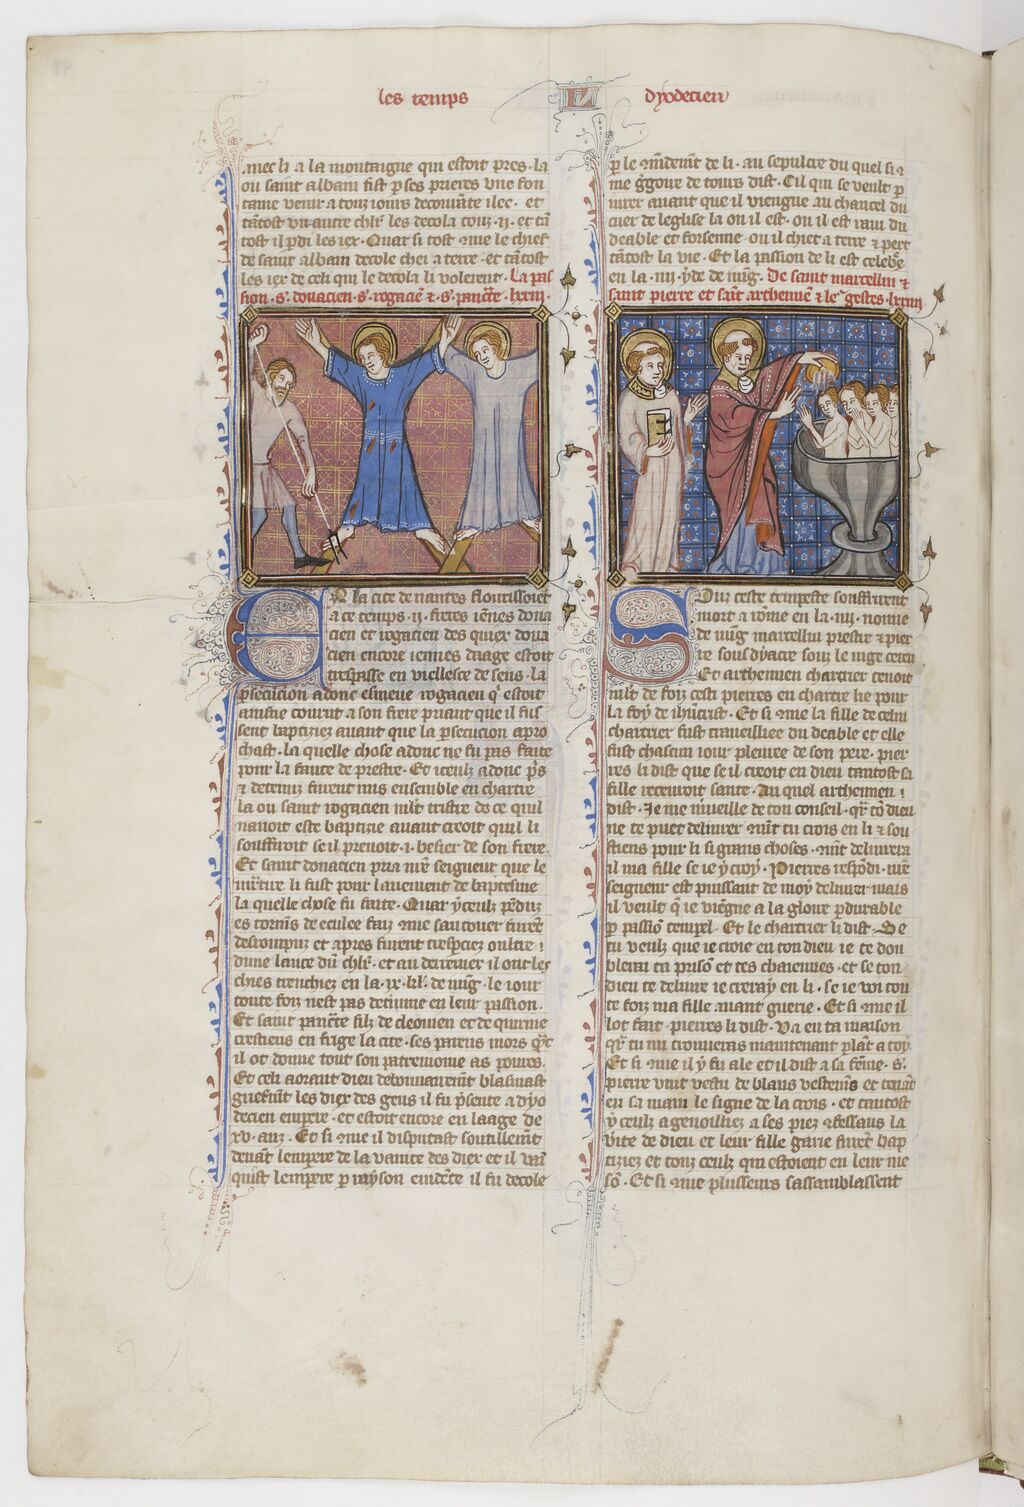 les temps
dyodecien
avec li a la montaigne qui estoit pres. la
ou saint albain fist p ses prieres une fon
taine venir a touz iours decourāte ilec. et
tātost un autre chlr les decola touz .ii. et tā
tost il pdi les iex. Quar si tost que le chief
de saint albain decole chei a terre. et tātost
les iex de celi qui le decola li volerent. La pas
sion .s'. donacien .s'. rogaciē & .s'. pancrē. lxxiii.
N la cite de nantes flourissoiēt
a ce temps .ii. freres iēnes dona
cien et rogacien des quiex dona
cien encore iennes daage estoit
trespasse en viellesce de sens. la
psecucion adonc esmeue rogacien q' estoit
ainsne courut a son frere priant que il fus
sent baptiziez avant que la psecucion apro
chast. la quelle chose adonc ne fu pas faite
pour la faute de prestre. Et iceulz adonc p's
& detenuz furent mis ensemble en chartre
la ou saint rogacien mlt tristre de ce quil
navoit este baptizie avant creoit quil li
souffiroit se il prenoit .i. besier de son frere.
Et saint donacien pria nr̄e seigneur que le
la quelle chose fu faite. Quar yceulz pēduz
desrompuz et apres furent trespciez oultre
dune lance dū chlr. et au derrenier il ont les
chies trenchiez en la .ix. kl'. de iuig. le iour
toute foiz nest pas detimie en leur passion.
Et saint pancrē filz de cleonien et de quirine
crestiens en frige la cite. ses parens mors
il ot donne tout son patremoine as povres.
Et celi aorant dieu debonnairemēt blasmast
les diex des gens il fu psente a dyo
decien empere. et estoit encore en laage de
xv. anz. Et si que il disputast soutillemēt
devāt lempere de la vanite des diex et il vai
quist lempere p rayson evidēte il fu decole
p le de li. au sepulcre du quel si 9
me ggoire de tours dist. Cil qui se veult p
iurer avant que il viengne au chancel du
cuer de leglise la ou il est. ou il est ravi du
deable et forsenne. ou il chiet a terre & pert
tātost la vie. Et la passion de li est celebe
en la .iiii. yde de iuīg. De saint marcellin &
saint pierre et saīt arthemiē & le' gestes. lxxiiii
Ouz ceste tempeste souffrirent
mort a rōme en la .iiii. nonne
de iuīg marcellin prestre & pier
re souz dyacre souz le iuge ceren
Et arthemien chartrier tenoit
mlt de foiz cesti pierres en chartre lie pour
la foy de ihūcrist. Et si que la fille de celui
chartrier fust traveilliee du deable et elle
fust chascun iour pleuree de son pere. pier
res li dist que se il creoit en dieu tantost sa
fille recevroit sante. Au quel arthemien
dist. Je me mveille de ton conseil. qr tō dieu
ne te puet delivrer tu crois en li & sou
stiens pour li si grans choses. delivrera
il ma fille se ie y croy. Pierres respōdi. nr̄e
seigneur est puissant de moy delivrer mais
il veult q ie viēgne a la gloire pdurable
p passiō tempel. Et le chartrier li dist. Se
tu veulz que ie croie en ton dieu ie te dou
blerai ta prisō et tes chaiennes. et se ton
dieu te delivre ie creray en li. se ie voi tou
te foiz ma fille avant guerie. Et si que il
lot fait. pierres li dist. Va en ta maison
qr tu mi trouveras maintenant plāt a toy.
Et si que il y fu ale et il dist a sa fēme. s'.
pierre vint vestu de blans vestemēs et tenāt
en sa main le signe de la crois. et tantost
yceulz agenoilliez a ses piez 9fessans la
vite de dieu et leur fille garie furēt bap
tiziez et touz ceulz qui estoient en leur me
sō. Et si que plusseurs sassamblassent